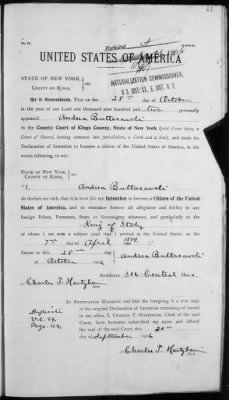 UNITED STATES OF AMERICA
NATURALIZATION COMMISSIONER,
STATE OF NEW YORK,
COUNTY OF KINGS,
Be it Remembered, That on the 28th day of October
in the year of our Lord one thousand nine hundred and two personally
appeared Andrea Buttacavoli
in the County Court of Kings County, State of New York (said Court being a
Court of Record, having common law jurisdiction, a Clerk and a Seal), and made his
Declaration of Intention to become a citizen of the United States of America, in the
words following, to wit:
STATE OF NEW YORK,
COUNTY OF KINGS,
"I, Andrea Buttacavoli
do declare on oath, that it is bona fide my Intention to become a Citizen of the United
States of America, and to renounce forever all allegiance and fidelity to any
foreign Prince, Potentate, State or Sovereignty whatever, and particularly to the
King of Italy
of whom I am now a subject (and that I arrived in the United States on the
7th day of April
Sworn to this 28th day Andrea Buttacavoli
of October
Residence 316 Central Ave
Charles T. Hartzheim
In Attestation Whereof, and that the foregoing is a true copy
of the original Declaration of Intention remaining of record
in my office, I, CHARLES T. HARTZHEIM, Clerk of the said
Court, have hereunto subscribed my name and affixed
the seal of the said Court, this 20th
day of September
Charles T. Hartzheim